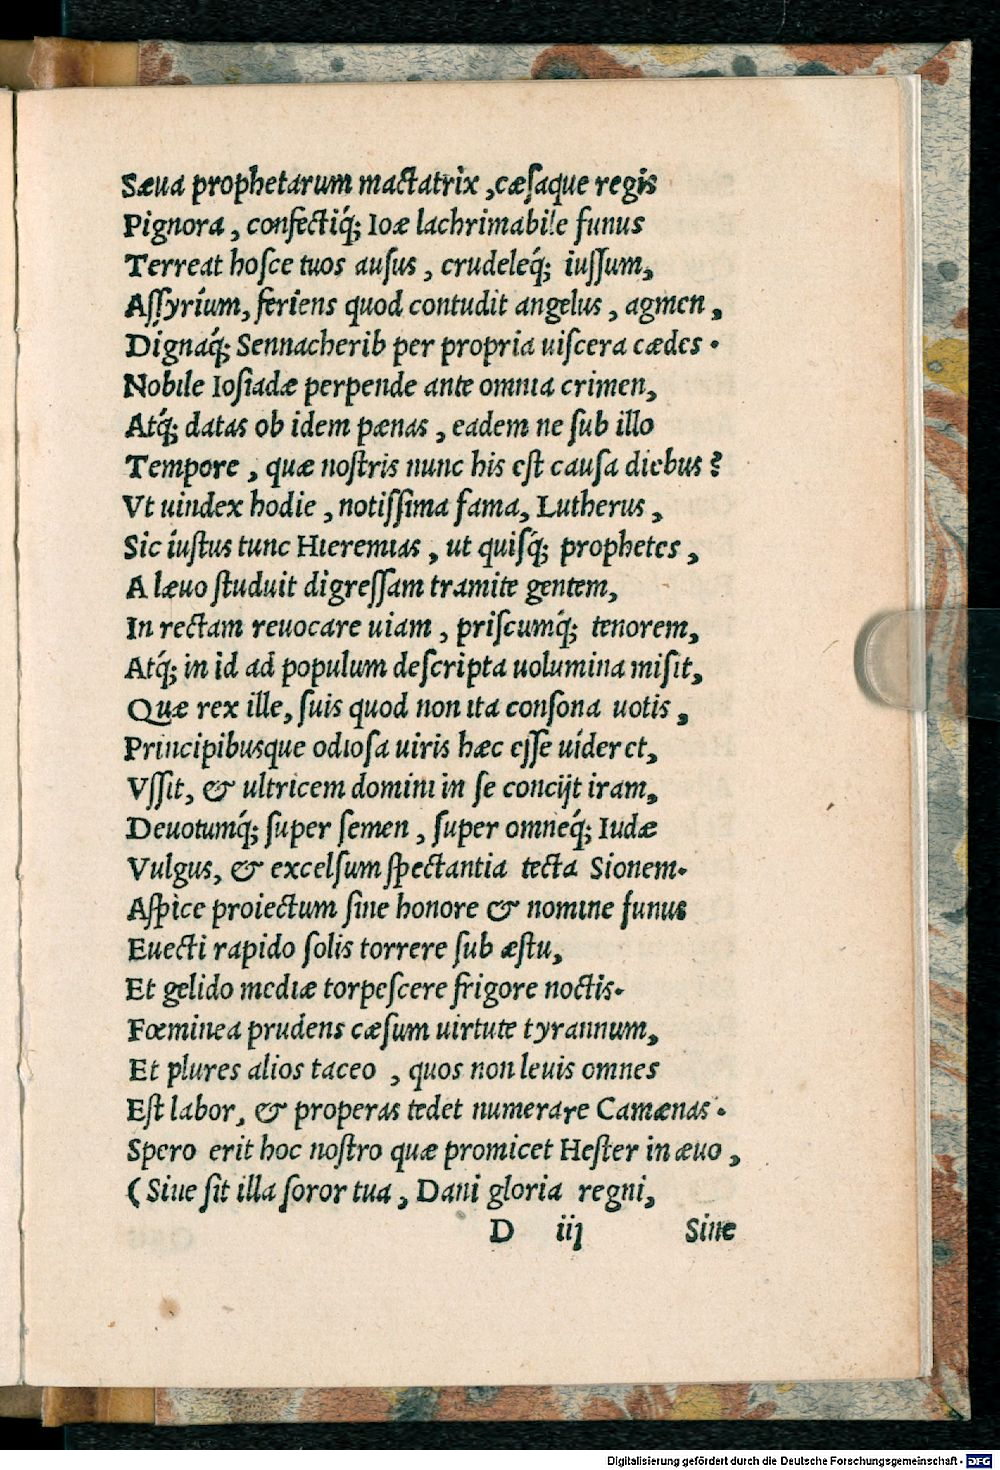 Sæua prophetarum mactatrix, cæsaque regis
Pignora, confectiq́; Ioæ lachrimabile funus
Terreat hosce tuos ausus, crudeleq́; iussum,
Assyrium, feriens quod contudit angelus, agmen,
Dignaq́; Sennacherib per propria uiscera cædes.
Nobile Iosiadæ perpende ante omnia crimen,
Atq́; datas ob idem pænas, eadem ne sub illo
Tempore, quæ nostris nunc his est causa diebus?
Vt uindex hodie, notissima fama, Lutherus,
Sic iustus tunc Hieremias, ut quisq́; prophetes,
A læuo studuit digressam tramite gentem,
In rectam reuocare uiam, priscumq́; tenorem,
Atq́; in id ad populum descripta uolumina misit,
Quæ rex ille, suis quod non ita consona uotis,
Principibusque odiosa uiris hæc esse uideret,
Vssit, & ultricem domini in se concijt iram,
Deuotumq́; super semen, super omneq́; Iudæ
Vulgus, & excelsum spectantia tecta Sionem.
Aspice proiectum sine honore & nomine funus
Euecti rapido solis torrere sub æstu,
Et gelido mediæ torpescere frigore noctis.
Fœminea prudens cæsum uirtute tyrannum,
Et plures alios taceo, quos non leuis omnes
Est labor, & properas tedet numerare Camænas.
Spero erit hoc nostro quæ promicet Hester in æuo,
(Siue sit illa soror tua, Dani gloria regni,
D iij Siue
Digitalisierung gefördert durch die Deutsche Forschungsgemeinschaft - DFG